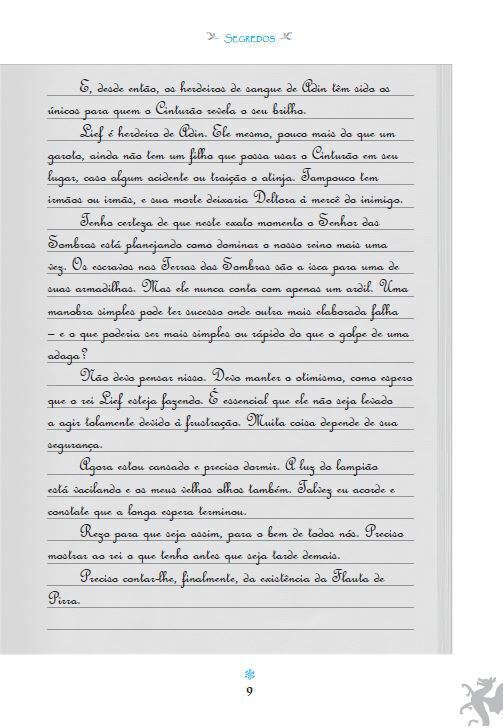 SEGREDOS
E, desde então, os herdeiros de sangue de Adin têm sido os
únicos para quem o Cinturão revela o seu brilho.
Lief é herdeiro de Adin. Ele mesmo, pouco mais do que um
garoto, ainda não tem um filho que possa usar o Cinturão em seu
lugar, caso algum acidente ou traição o atinja. Tampouco tem
irmãos ou irmãs, e sua morte deixaria Deltora à mercê do inimigo.
Tenho certeza de que neste exato momento o Senhor das
Sombras está planejando como dominar o nosso reino mais uma
vez. Os escravos nas Terras das Sombras são a isca para uma de
suas armadilhas. Mas ele nunca conta com apenas um ardil. Uma
manobra simples pode ter sucesso onde outra mais elaborada falha
– e o que poderia ser mais simples ou rápido do que o golpe de uma
adaga?
Não devo pensar nisso. Devo manter o otimismo, como espero
que o rei Lief esteja fazendo. É essencial que ele não seja levado
a agir tolamente devido à frustração. Muita coisa depende de sua
segurança.
Agora estou cansado e preciso dormir. A luz do lampião
está vacilando e os meus velhos olhos também. Talvez eu acorde e
constate que a longa espera terminou.
Rezo para que seja assim, para o bem de todos nós. Preciso
mostrar ao rei o que tenho antes que seja tarde demais.
Preciso contar-lhe, finalmente, da existência da Flauta de
Pirra.
9